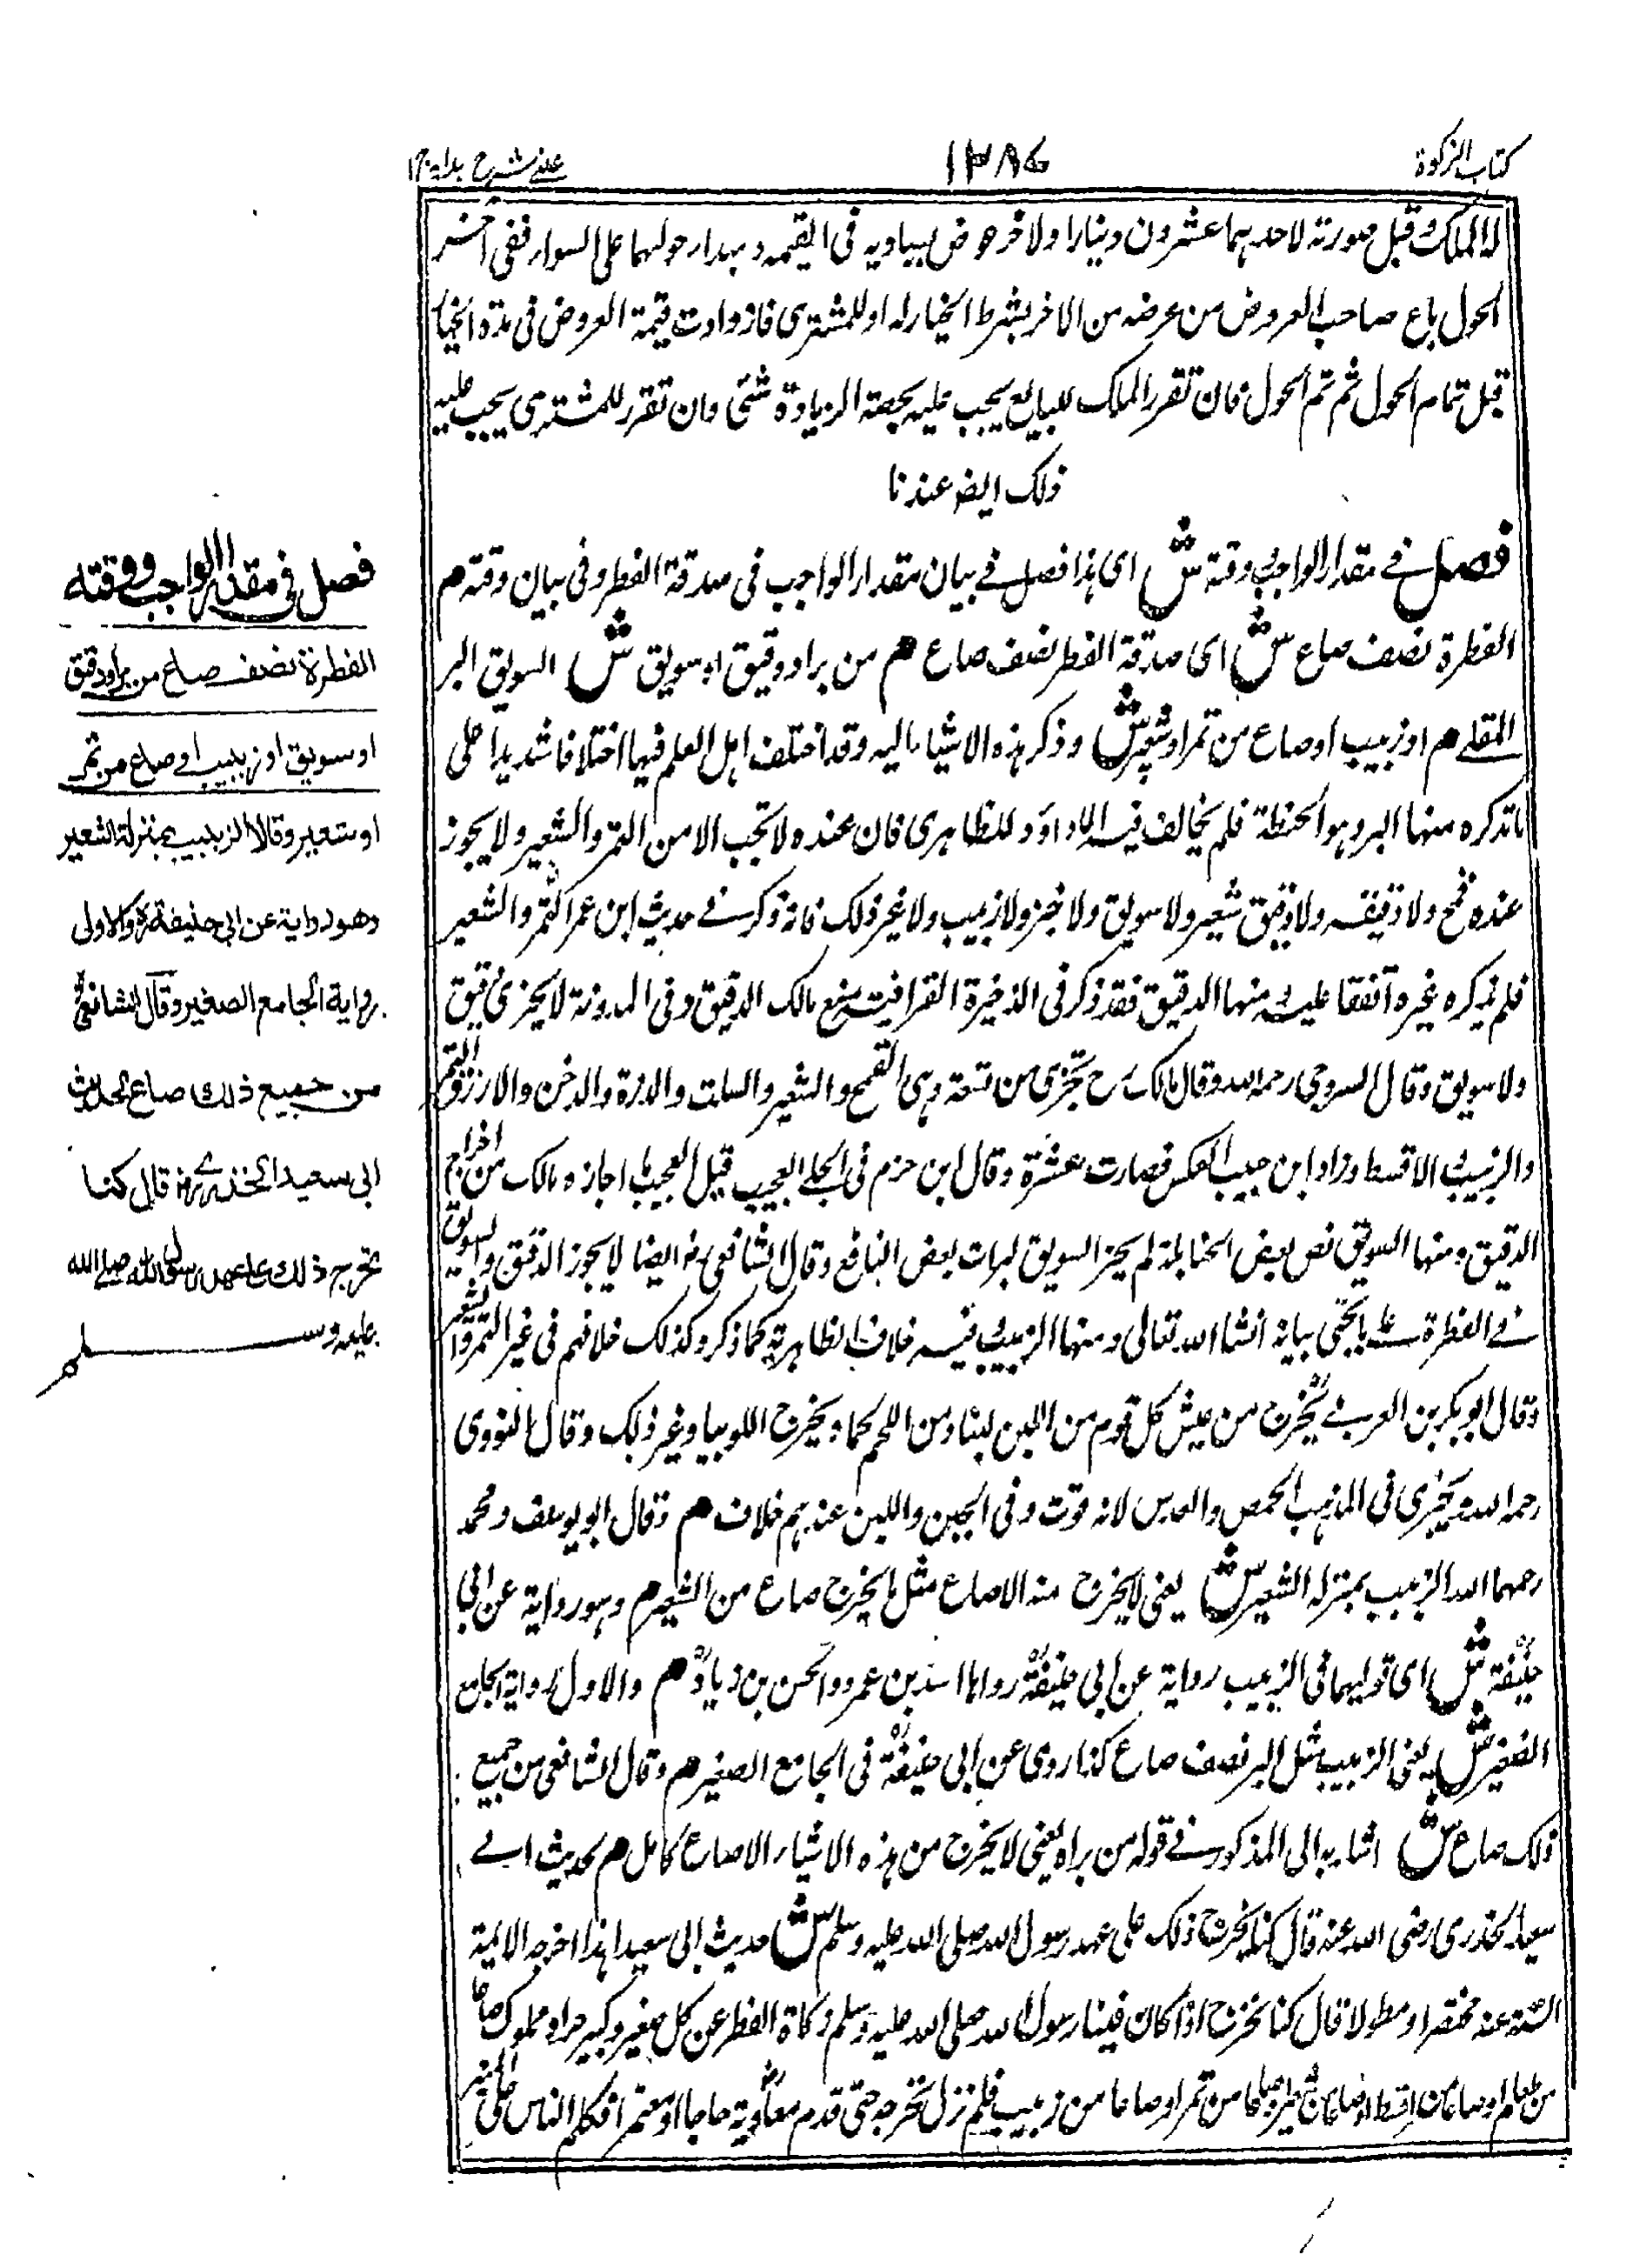 كتاب الزكوة
١٣٨٤
عينى شرح هداية ج١
لا الملك وقيل صورته لاحدهما عشرون دينارا ولاخر عوض يساويه فى القيمة ومبدار حولهما على السواء ففى آخر
الحول باع صاحب العروض من عرضه من الاخر بشرط الخيار له او للمشترى فازدادت قيمة العروض فى مدة الخيار
قبل تمام الحول ثم تم الحول فان تقرر الملك للبايع يجب عليه بحصة الزيادة شئى وان تقرر للمشترى يجب عليه
ذلك ايض عندنا
فصل فے مقدار الواجب ووقته ش اى هذا فصل فے بيان مقدار الواجب فى صدقة الفطر وفى بيان وقته م
الفطرة نصف صاع ش اى صدقة الفطر نصف صاع م من بر او دقيق او سويق ش السويق البر
المقلے م او زبيب او صاع من تمر او شعير ش وذكر هذه الاشياء ماليه وقد اختلف اهل العلم فيها اختلافا شديدا على
ما تذكره منها البر وهو الحنطة فلم يخالف فيه الا داود الظاهرى فان عنده لا تجب الا من التمر والشعير ولا يجوز
عنده قمح ولا دقيقه ولا دقيق شعير ولا سويق ولا خبز ولا زبيب ولا غير ذلك فانه ذكر فے حديث ابن عمر التمر والشعير
فلم يذكره غيره اتفقا عليه ومنها الدقيق فقد ذكر فى الذخيرة القرافية منع مالك الدقيق وفى المدونة لا يجزئ دقيق
ولا سويق وقال السروجى رحمه الله وقال مالك رح تجزى من تسعة وهى القمح والشعير والسلت والذرة والدخن والارز والتمر
والزبيب الاقسط وزاد ابن حبيب العلس فصارت عشرة وقال ابن حزم فى المحلے العجيب قيل العجيب ما اجازه مالك من اخراج
الدقيق ومنها السويق نص بعض الحنابلة لم يجز السويق لفوات بعض المنافع وقال الشافعى رح ايضا لا يجوز الدقيق والسويق
فے الفطرة علے ما يجئى بيانه انشا الله تعالى ومنها الزبيب فيه خلاف الظاهرية كما ذكر وكذلك خلافهم فى غير التمر والشعير
وقال ابو بكر بن العربے يخرج من عيش كل قوم من اللبن لبنا ومن اللحم لحما ويخرج اللوبيا وغير ذلك وقال النووى
رحمه الله ويجزى فى المذهب الحمص والعدس لانه قوت وفى الجبن واللبن عندهم خلاف م وقال ابو يوسف ومحمد
رحمهما الله الزبيب بمنزلة الشعير ش يعنى لا يخرج منه الا صاع مثل ما يخرج صاع من الشعير م وهو رواية عن ابى
حنيفة ش اى قولهما فى الزبيب رواية عن ابى حنيفة رواها اسد بن عمرو والحسن بن زياد م والاول رواية الجامع
الصغير ش يعنى الزبيب مثل البر نصف صاع كذا روى عن ابى حنيفة فى الجامع الصغير م وقال الشافعى من جميع
ذلك صاع ش اشار به الى المذكور فے قوله من بر اه يعنى لا يخرج من هذه الاشياء الا صاع كامل م لحديث ابے
سعيد الخدرى رضى الله عنه قال كنا نخرج ذلك على عهد رسول الله صلى الله عليه وسلم ش حديث ابى سعيد هذا اخرجه الايمة
الستة عنه مختصرا ومطولا قال كنا نخرج اذا كان فينا رسول الله صلى الله عليه وسلم زكاة الفطر عن كل صغير وكبير حر او مملوك صاعا
من طعام او صاعا من اقسط او صاعا من شعير او صاعا من تمر او صاعا من زبيب فلم نزل نخرجه حتى قدم معاوية حاجا او معتمرا فكلم الناس على المنبر
فصل فى مقدار الواجب ووقته
الفطرة نصف صاع من بر او دقيق
او سويق او زبيب او صاع من تمر
او شعير وقالا الزبيب بمنزلة الشعير
وهو رواية عن ابى حنيفة رح والاولى
رواية الجامع الصغير وقال الشافعى
من جميع ذلك صاع لحديث
ابى سعيد الخدرے رض قال كنا
نخرج ذلك على عهد رسول الله صلے الله
عليه وسلم